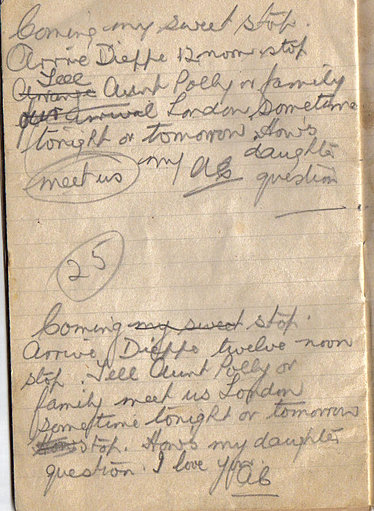 Coming my sweet stop.
Arrive Dieppe 12 noon stop
Tell
Arrange Aunt Polly or family
our arrival London sometime
tonight or tomorrow. How's
my daughter
meet us AB question
25
Coming my sweet stop.
Arrive Dieppe twelve noon
stop. Tell Aunt Polly or
family meet us London
sometime tonight or tomorrow
stop. How's my daughter
question. I love you.
AB